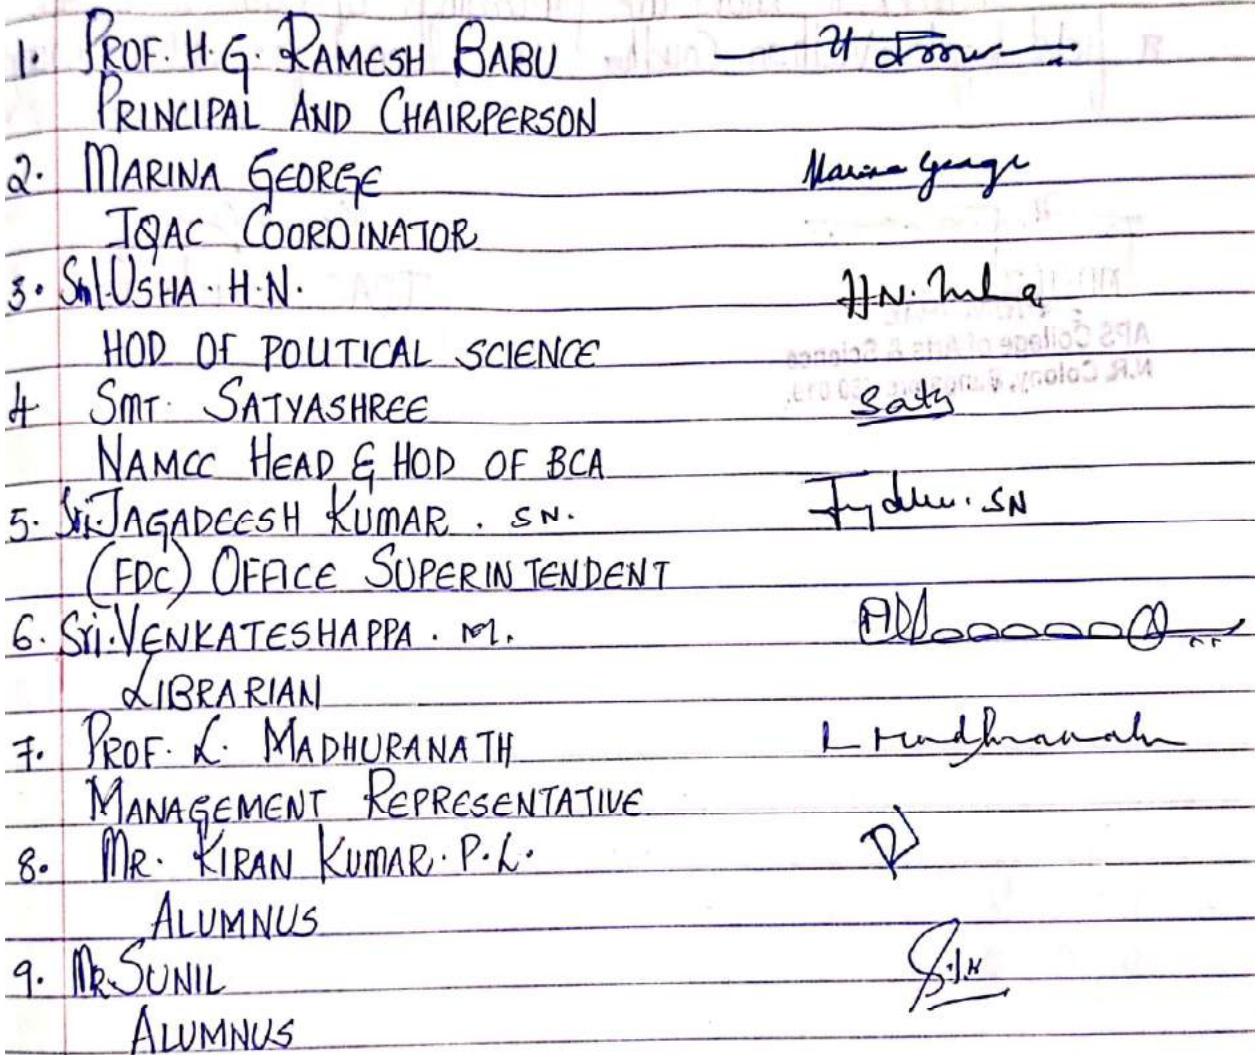 1. PROF. H.G. RAMESH BABU
PRINCIPAL AND CHAIRPERSON
2. MARINA GEORGE Marina George
IQAC COORDINATOR
3. Smt. USHA. H.N. H.N. Usha
HOD OF POLITICAL SCIENCE
4 SMT. SATYASHREE Saty
NAMCC HEAD & HOD OF BCA
5. Sri. JAGADEESH KUMAR. SN. SN
(FDC) OFFICE SUPERINTENDENT
6. Sri. VENKATESHAPPA. M.
LIBRARIAN
7. PROF. L. MADHURANATH L Madhuranath
MANAGEMENT REPRESENTATIVE
8. MR. KIRAN KUMAR. P.L.
ALUMNUS
9. MR. SUNIL
ALUMNUS
APS College of Arts & Science
N.R. Colony,